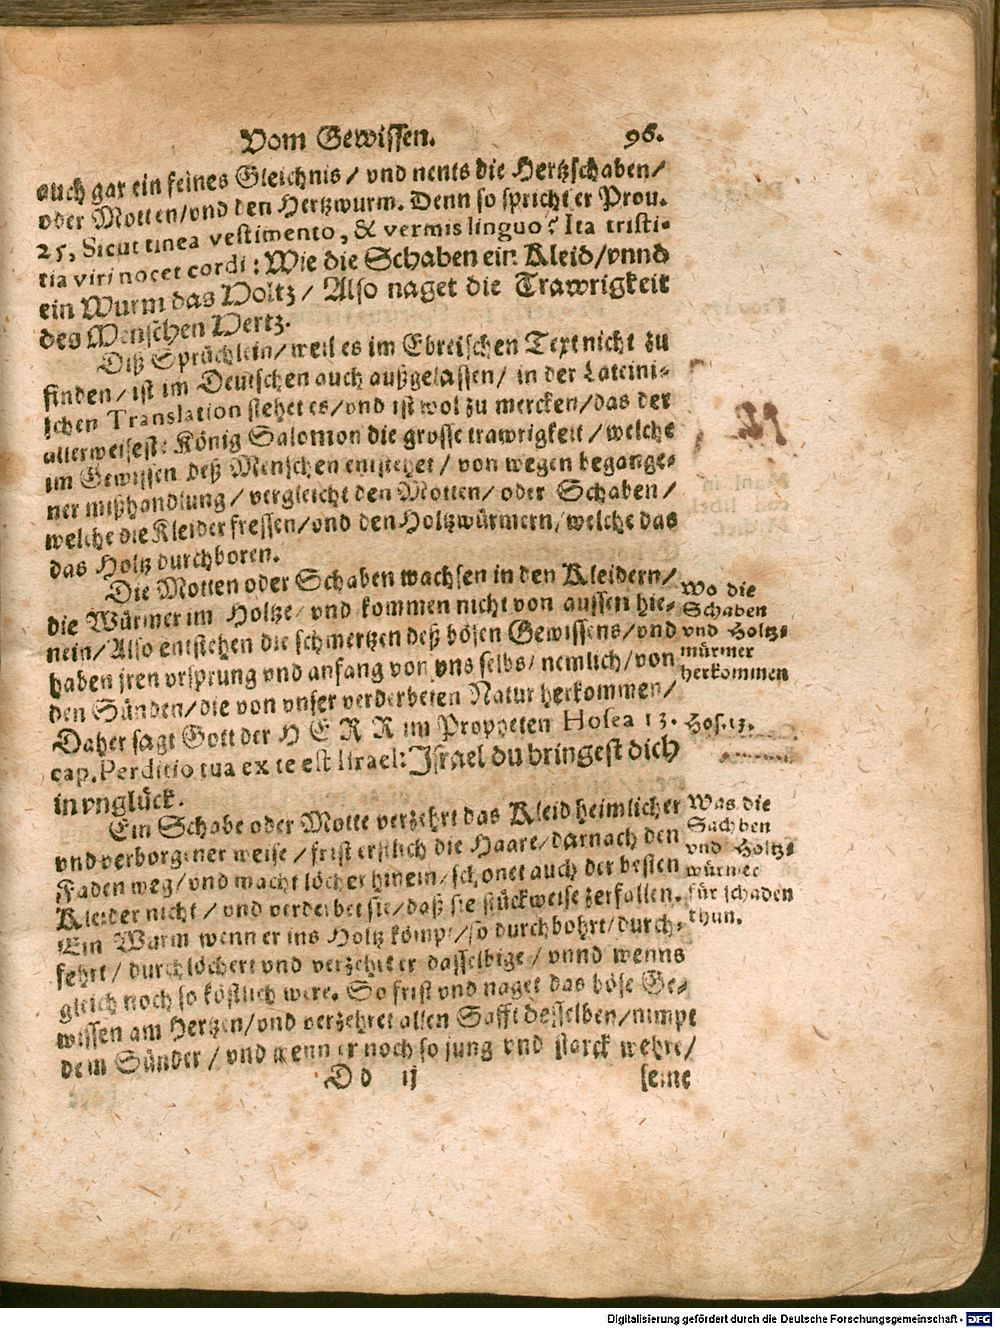 Vom Gewissen. 96.
auch gar ein feines Gleichnis / vnd nents die Hertzschaben /
oder Motten / vnd den Hertzwurm. Denn so spricht er Prou.
25, Sicut tinea vestimento, & vermis linguo? Ita tristi-
tia viri nocet cordi: Wie die Schaben ein Kleid / vnnd
ein Wurm das Holtz / Also naget die Trawrigkeit
des Menschen Hertz.
Diß Sprüchlein / weil es im Ebreischen Text nicht zu
finden / ist im Deutschen auch außgelassen / in der Lateini-
schen Translation stehet es / vnd ist wol zu mercken / das der
allerweiseste König Salomon die grosse trawrigkeit / welche
im Gewissen deß Menschen entstehet / von wegen begange-
ner mißhandlung / vergleicht den Motten / oder Schaben /
welche die Kleider fressen / vnd den Holtzwürmern / welche das
das Holtz durchboren.
Die Motten oder Schaben wachsen in den Kleidern /
die Würmer im Holtze / vnd kommen nicht von aussen hie-
nein / Also entstehen die schmertzen deß bösen Gewissens / vnd
haben jren vrsprung vnd anfang von vns selbs / nemlich / von
den Sünden / die von vnser verderbeten Natur herkommen /
Daher sagt Gott der HERR im Propheten Hosea 13.
cap. Perditio tua ex te est Iirael: Israel du bringest dich
in vnglück.
Wo die
Schaben
vnd Holtz-
würmer
herkommen
Hos. 13.
Ein Schabe oder Motte verzehrt das Kleid heimlicher
vnd verborgener weise / frist erstlich die Haare / darnach den
Faden weg / vnd macht löcher hinein / schonet auch der besten
Kleider nicht / vnd verderbet sie / daß sie stückweise zerfallen.
Ein Wurm wenn er ins Holtz kömpt / so durchbohrt / durch-
fehrt / durchlöchert vnd verzehrt er dasselbige / vnnd wenns
gleich noch so köstlich were. So frist vnd naget das böse Ge-
wissen am Hertzen / vnd verzehret allen Safft desselben / nimpt
dem Sünder / vnd wenn er noch so jung vnd starck wehre /
Was die
Sachben
vnd Holtz-
würmer
für schaden
thun.
Dd ij seine
Digitalisierung gefördert durch die Deutsche Forschungsgemeinschaft - DFG